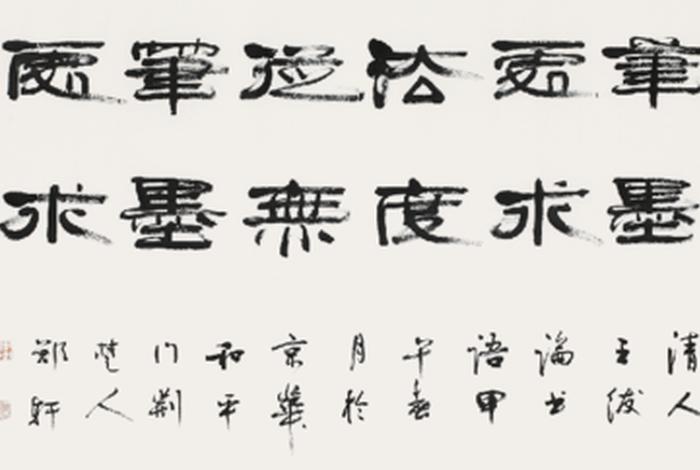 筆墨
處求
法度
從無
筆墨
處求
清人
王紱
論書
語甲
午春
月於
京華
和平
門荊
楚人
鄭軒